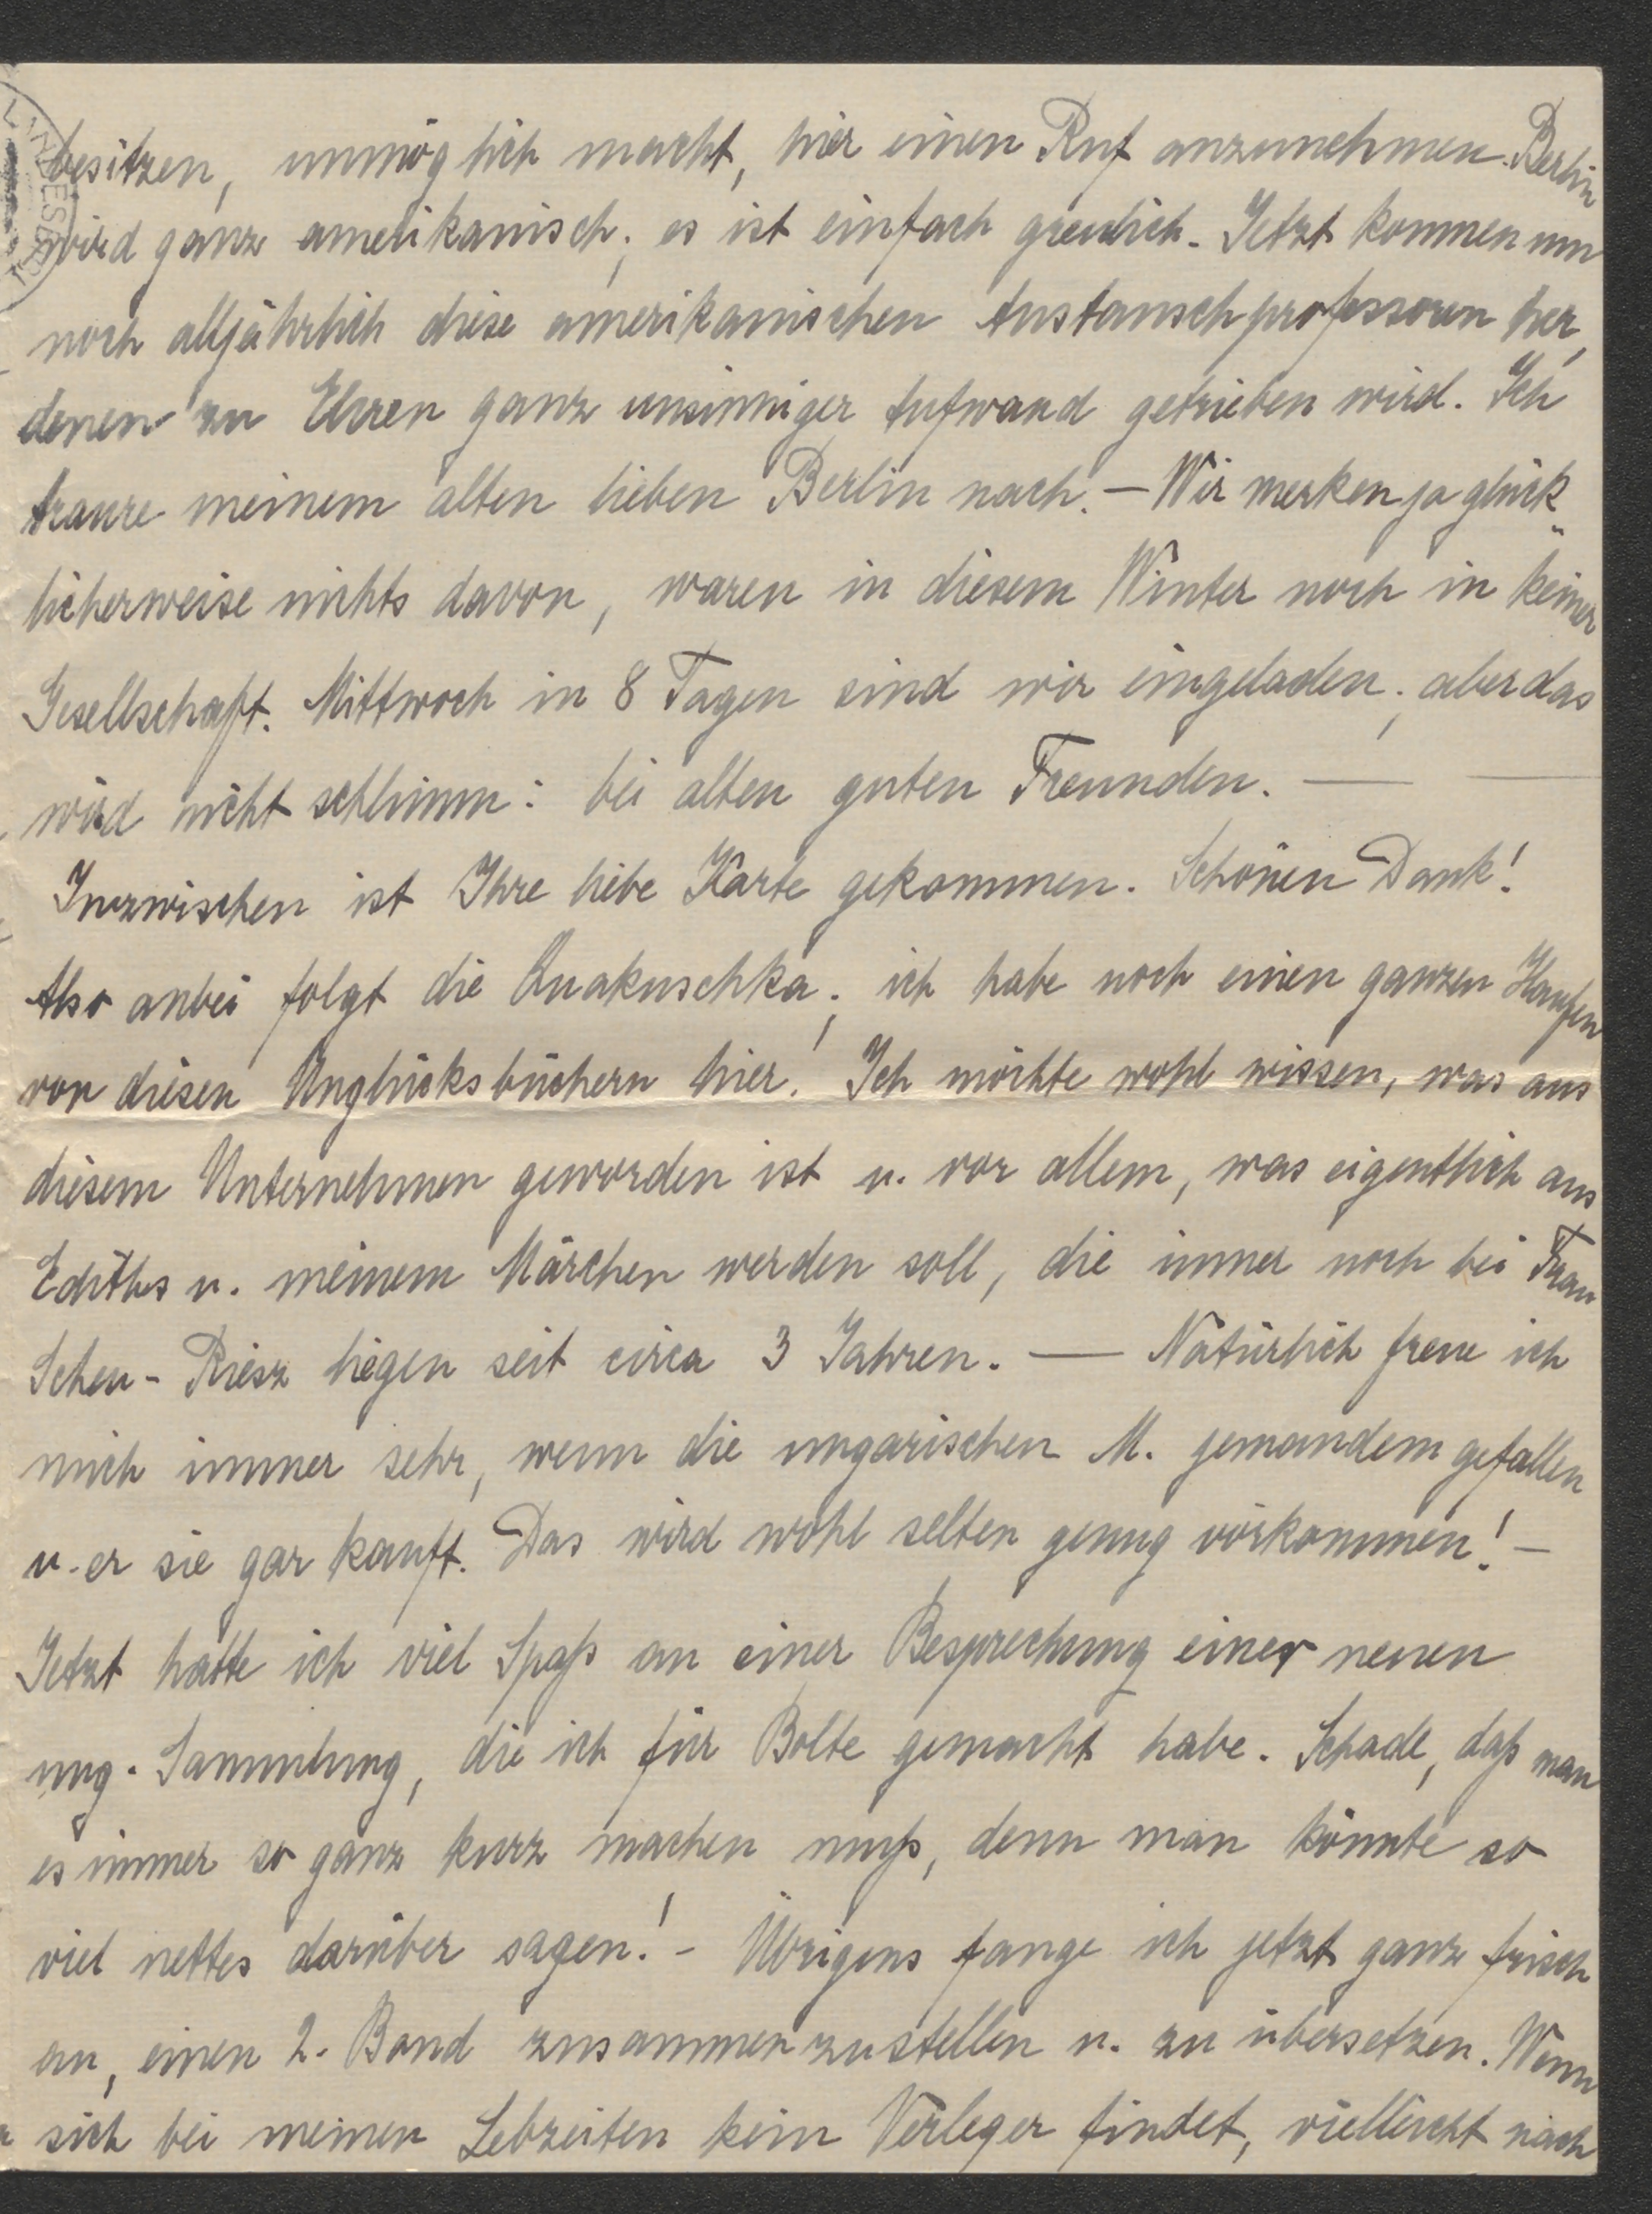 besitzen, unmöglich macht, hier einen Ruf anzunehmen. Berlin
wird ganz amerikanisch; es ist einfach greulich. Jetzt kommen nun
noch alljährlich diese amerikanischen Austauschprofessoren her,
denen zu Ehren ganz unsinniger Aufwand getrieben wird. Ich
traure meinem alten lieben Berlin nach. — Wir merken ja glück-
licherweise nichts davon, waren in diesem Winter noch in keiner
Gesellschaft. Mittwoch in 8 Tagen sind wir eingeladen; aber das
wird nicht schlimm: bei alten guten Freunden. — —
Inzwischen ist Ihre liebe Karte gekommen. Schönen Dank!
Also anbei folgt die Quakuschka; ich habe noch einen ganzen Haufen
von diesen Unglücksbüchern hier! Ich möchte wohl wissen, was aus
diesem Unternehmen geworden ist u. vor allem, was eigentlich aus
Ediths u. meinem Märchen werden soll, die immer noch bei Frau
Scheu-Riesz liegen seit circa 3 Jahren. — Natürlich freue ich
mich immer sehr, wenn die ungarischen M. jemandem gefallen
u. er sie gar kauft. Das wird wohl selten genug vorkommen! —
Jetzt hatte ich viel Spaß an einer Besprechung einer neuen
ung. Sammlung, die ich für Bolte gemacht habe. Schade, daß man
es immer so ganz kurz machen muß, denn man könnte so
viel nettes darüber sagen! - Übrigens fange ich jetzt ganz frisch
an, einen 2. Band zusammenzustellen u. zu übersetzen. Wenn
sich bei meinen Lebzeiten kein Verleger findet, vielleicht nach